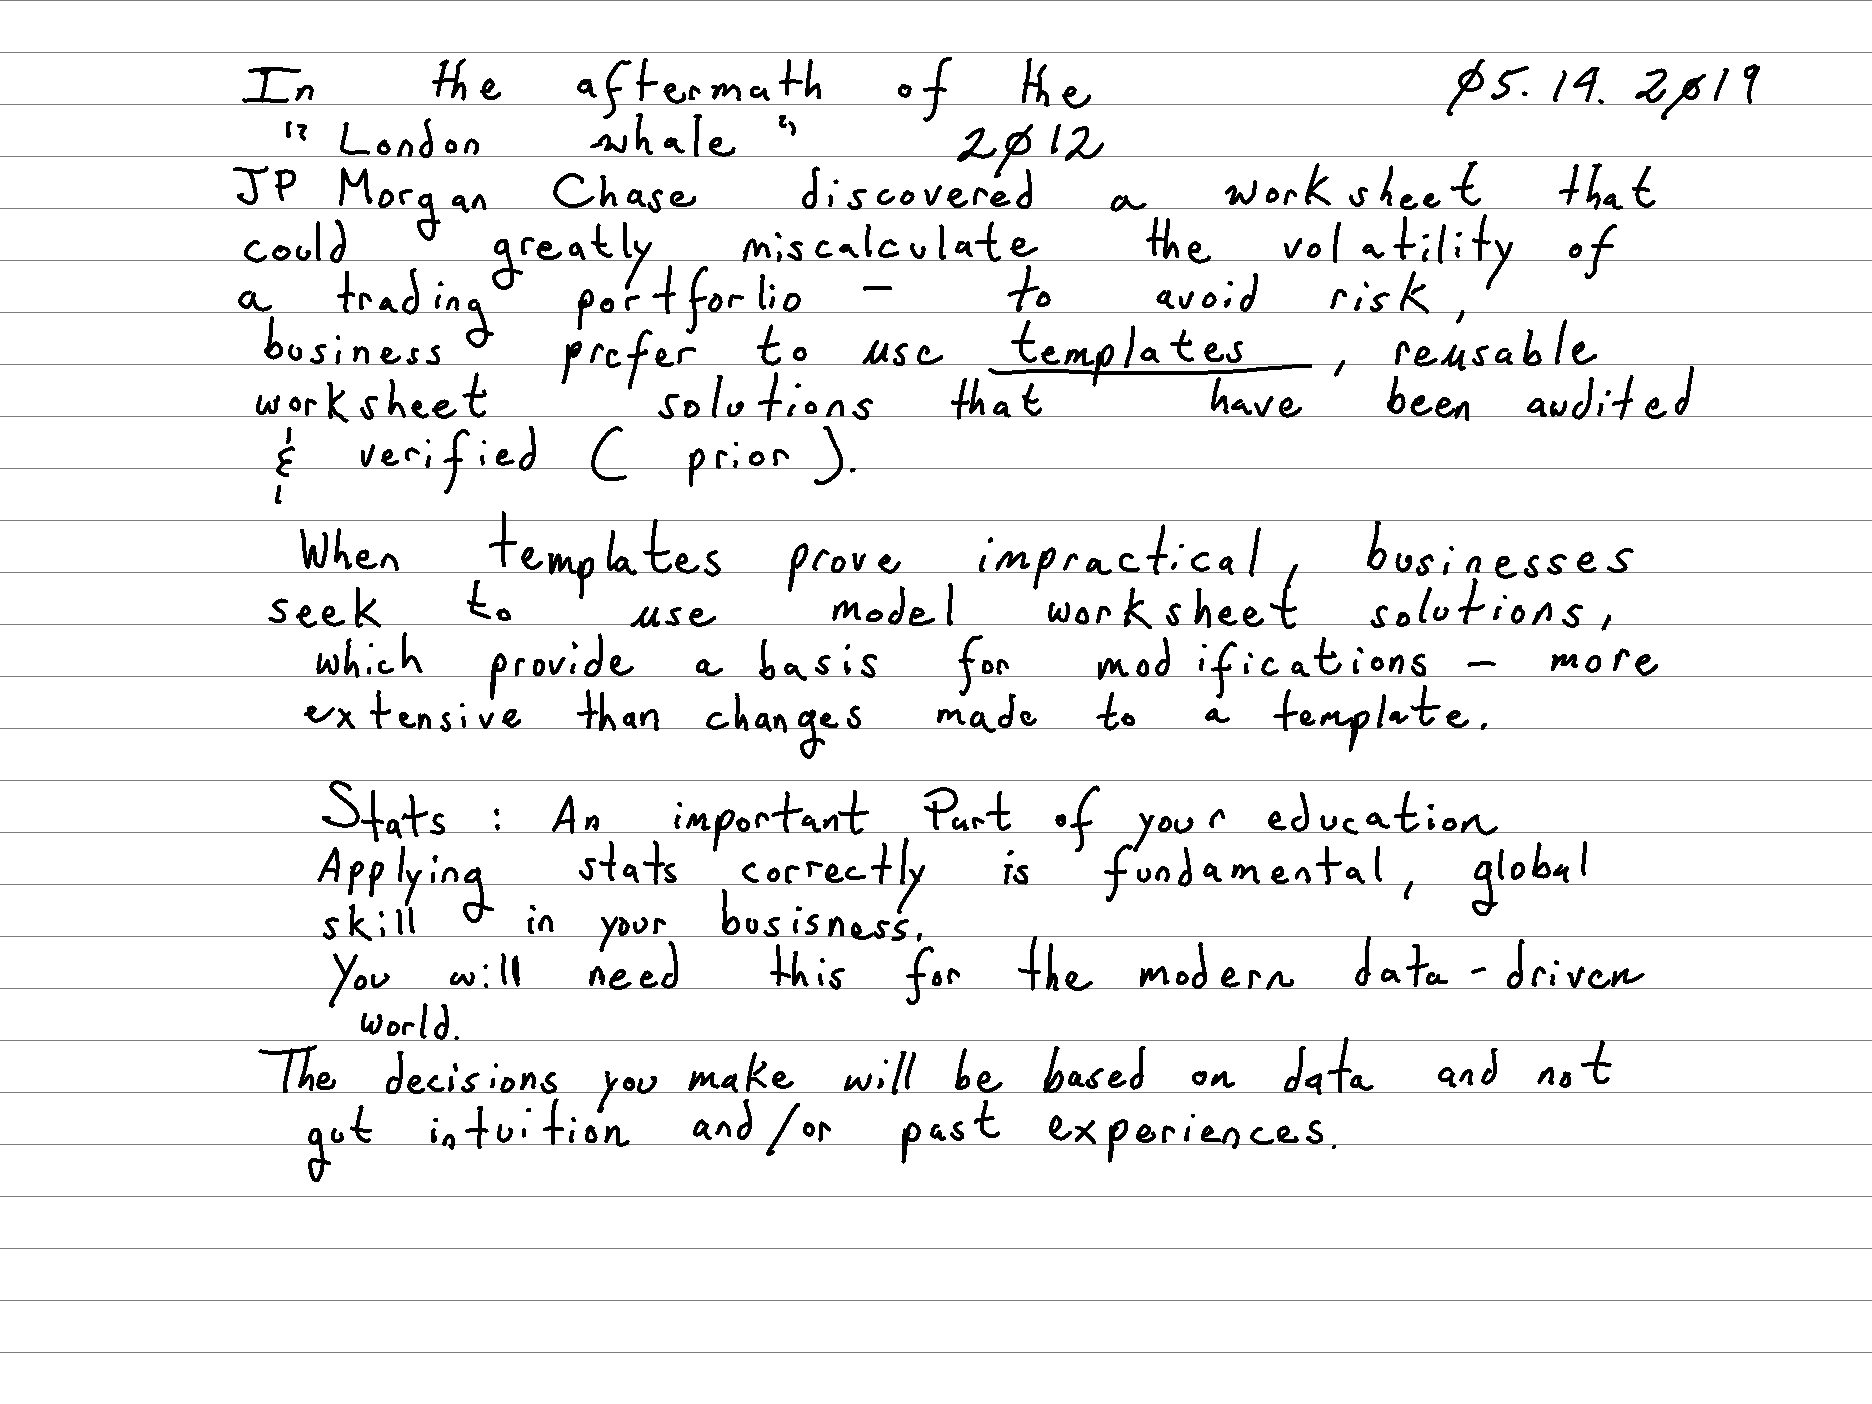 In the aftermath of the ø5.14.2ø19
"London whale" 2ø12
JP Morgan Chase discovered a worksheet that
could greatly miscalculate the volatility of
a trading portforlio - to avoid risk,
business prefer to use templates, reusable
worksheet solutions that have been audited
& verified (prior).
When templates prove impractical, businesses
seek to use model worksheet solutions,
which provide a basis for modifications - more
extensive than changes made to a template.
Stats: An important Part of your education
Applying stats correctly is fundamental, global
skill in your busisness.
You will need this for the modern data-driven
world.
The decisions you make will be based on data and not
gut intuition and/or past experiences.